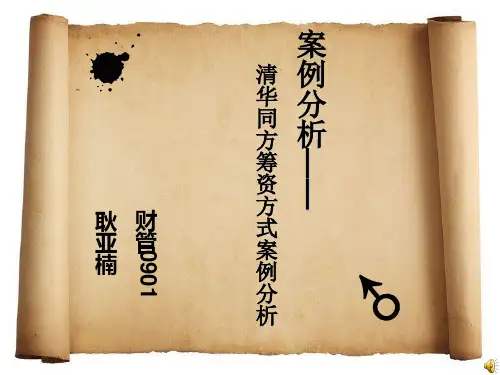 案例分析——
清华同方筹资方式案例分析
财管0901
耿亚楠